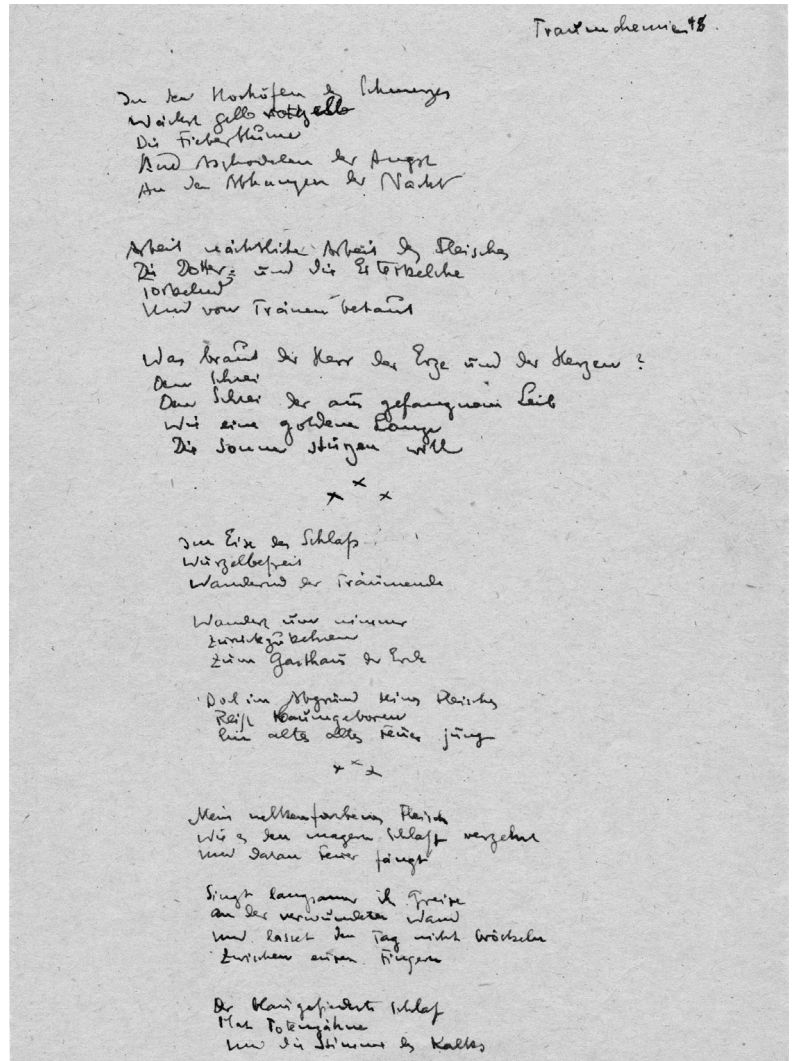 Traumchemie 48.
In den Vorhöfen des Schmerzes
Wächst gelb
Die Fieberblume
Und Asphodelen der Angst
An den Abhängen der Nacht
Arbeit nächtliche Arbeit des Fleisches
Die Dotter- und die Eiterkelche
torkelnd
Und vom Tränen betaut
Was braut der Herr der Erze und der Herzen?
Den Schrei
Den Schrei der aus gefangnem Leib
Wie eine goldene Lanze
Die Sonne stürzen will
x x x
Im Eise des Schlafs
Wurzelbefreit
Wandernd der Träumende
Wandert um nimmer
zurückzukehren
zum Gasthaus der Erde
Doch im Abgrund seines Fleisches
Reift kaumgeboren
Ein altes altes Feuer jung
x x x
Mein nelkenfarbenes Fleisch
Wie es den magern Schlaf verzehrt
Und daran Feuer fängt
Singt langsamer ihr Greise
an der verwundeten Wand
Und lasset den Tag nicht bröckeln
Zwischen euren Fingern
Der blaugefiederte Schlaf
Hat Totenzähne
Und die Stimme des Kalks